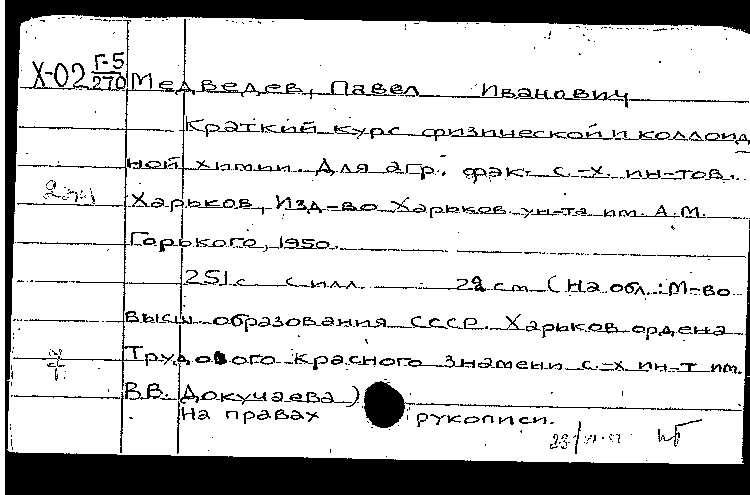 Х-02 Г-5/270 Медведев, Павел Иванович
Краткий курс физической и коллоид
ной химии. Для агр. фак. с.-х. ин-тов.
2 экз
Харьков, Изд-во Харьков ун-та им. А.М.
Горького, 1950.
251 с. с илл. 22 см (На обл.: М-во
высш образования СССР. Харьков ордена
Трудового красного знамени с.-х ин-т им.
В.В. Докучаева)
На правах рукописи.